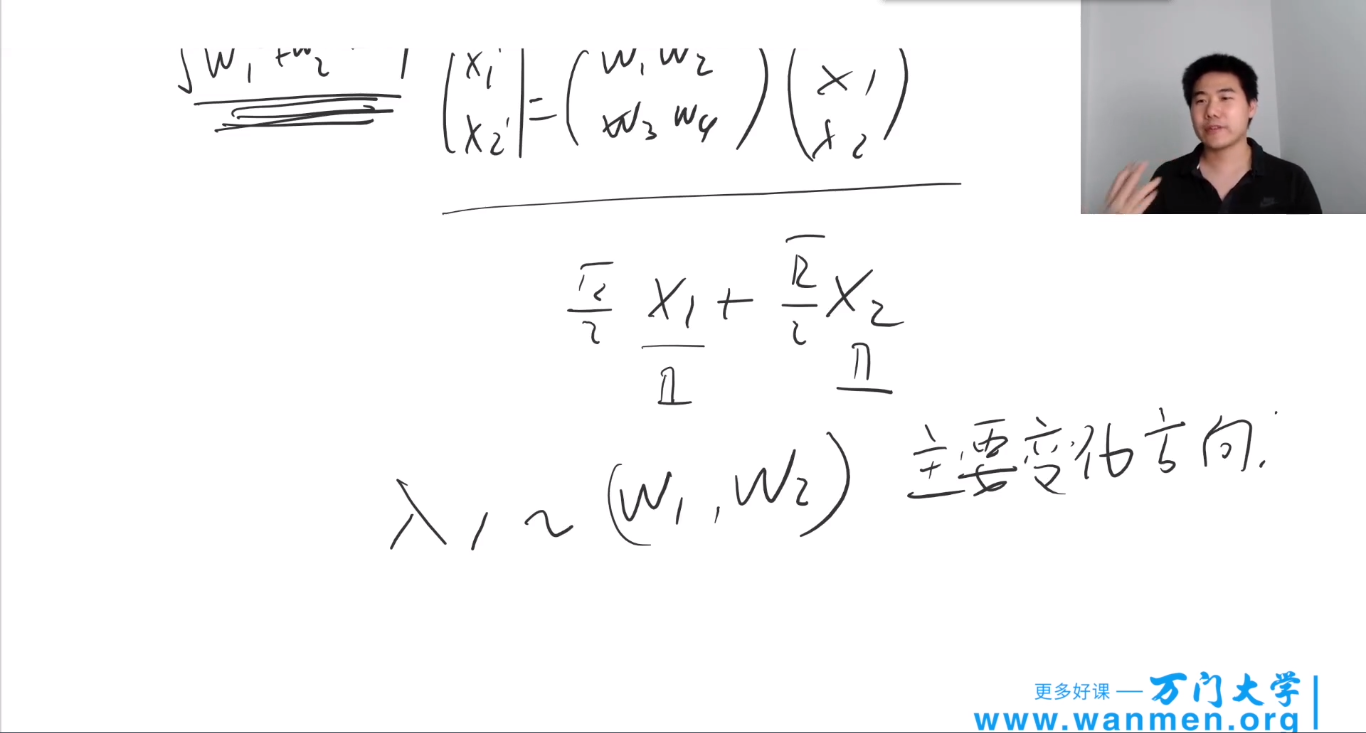 √W₁ + W₂
(x₁' x₂') = (W₁ W₂ W₃ W₄) (x₁ x₂)
√2/2 X₁ + √2/2 X₂
λ₁ ~ (W₁, W₂) 主要变化方向.
更多好课 — 万门大学
www.wanmen.org